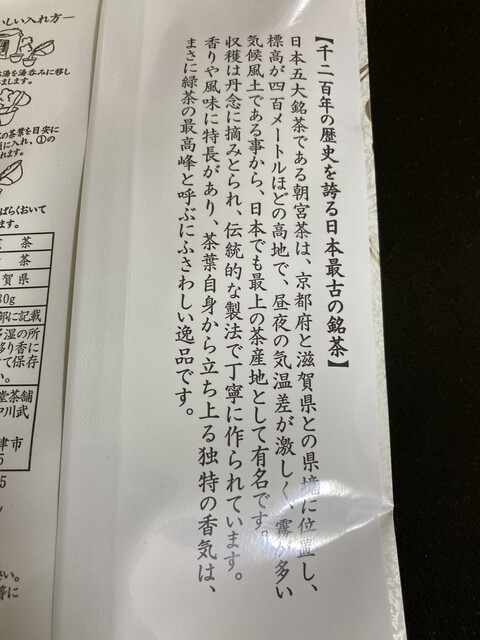 【千二百年の歴史を誇る日本最古の銘茶】
日本五大銘茶である朝宮茶は、京都府と滋賀県との県境に位置し、
標高が四百メートルほどの高地で、昼夜の気温差が激しく、霧が多い
気候風土である事から、日本でも最上の茶産地として有名です。
収穫は丹念に摘みとられ、伝統的な製法で丁寧に作られています。
香りや風味に特長があり、茶葉自身から立ち上る独特の香気は、
まさに緑茶の最高峰と呼ぶにふさわしい逸品です。
いしい入れ方ー
お湯を湯呑みに移し
の茶葉を目安に
須に入れ、①の
ばらくおいて
ます。
茶
茶
賀県
80g
部に記載
多湿の所
移り香に
けて保存
い。
堂茶舗
中川武
津市
5
5
さい。
等に